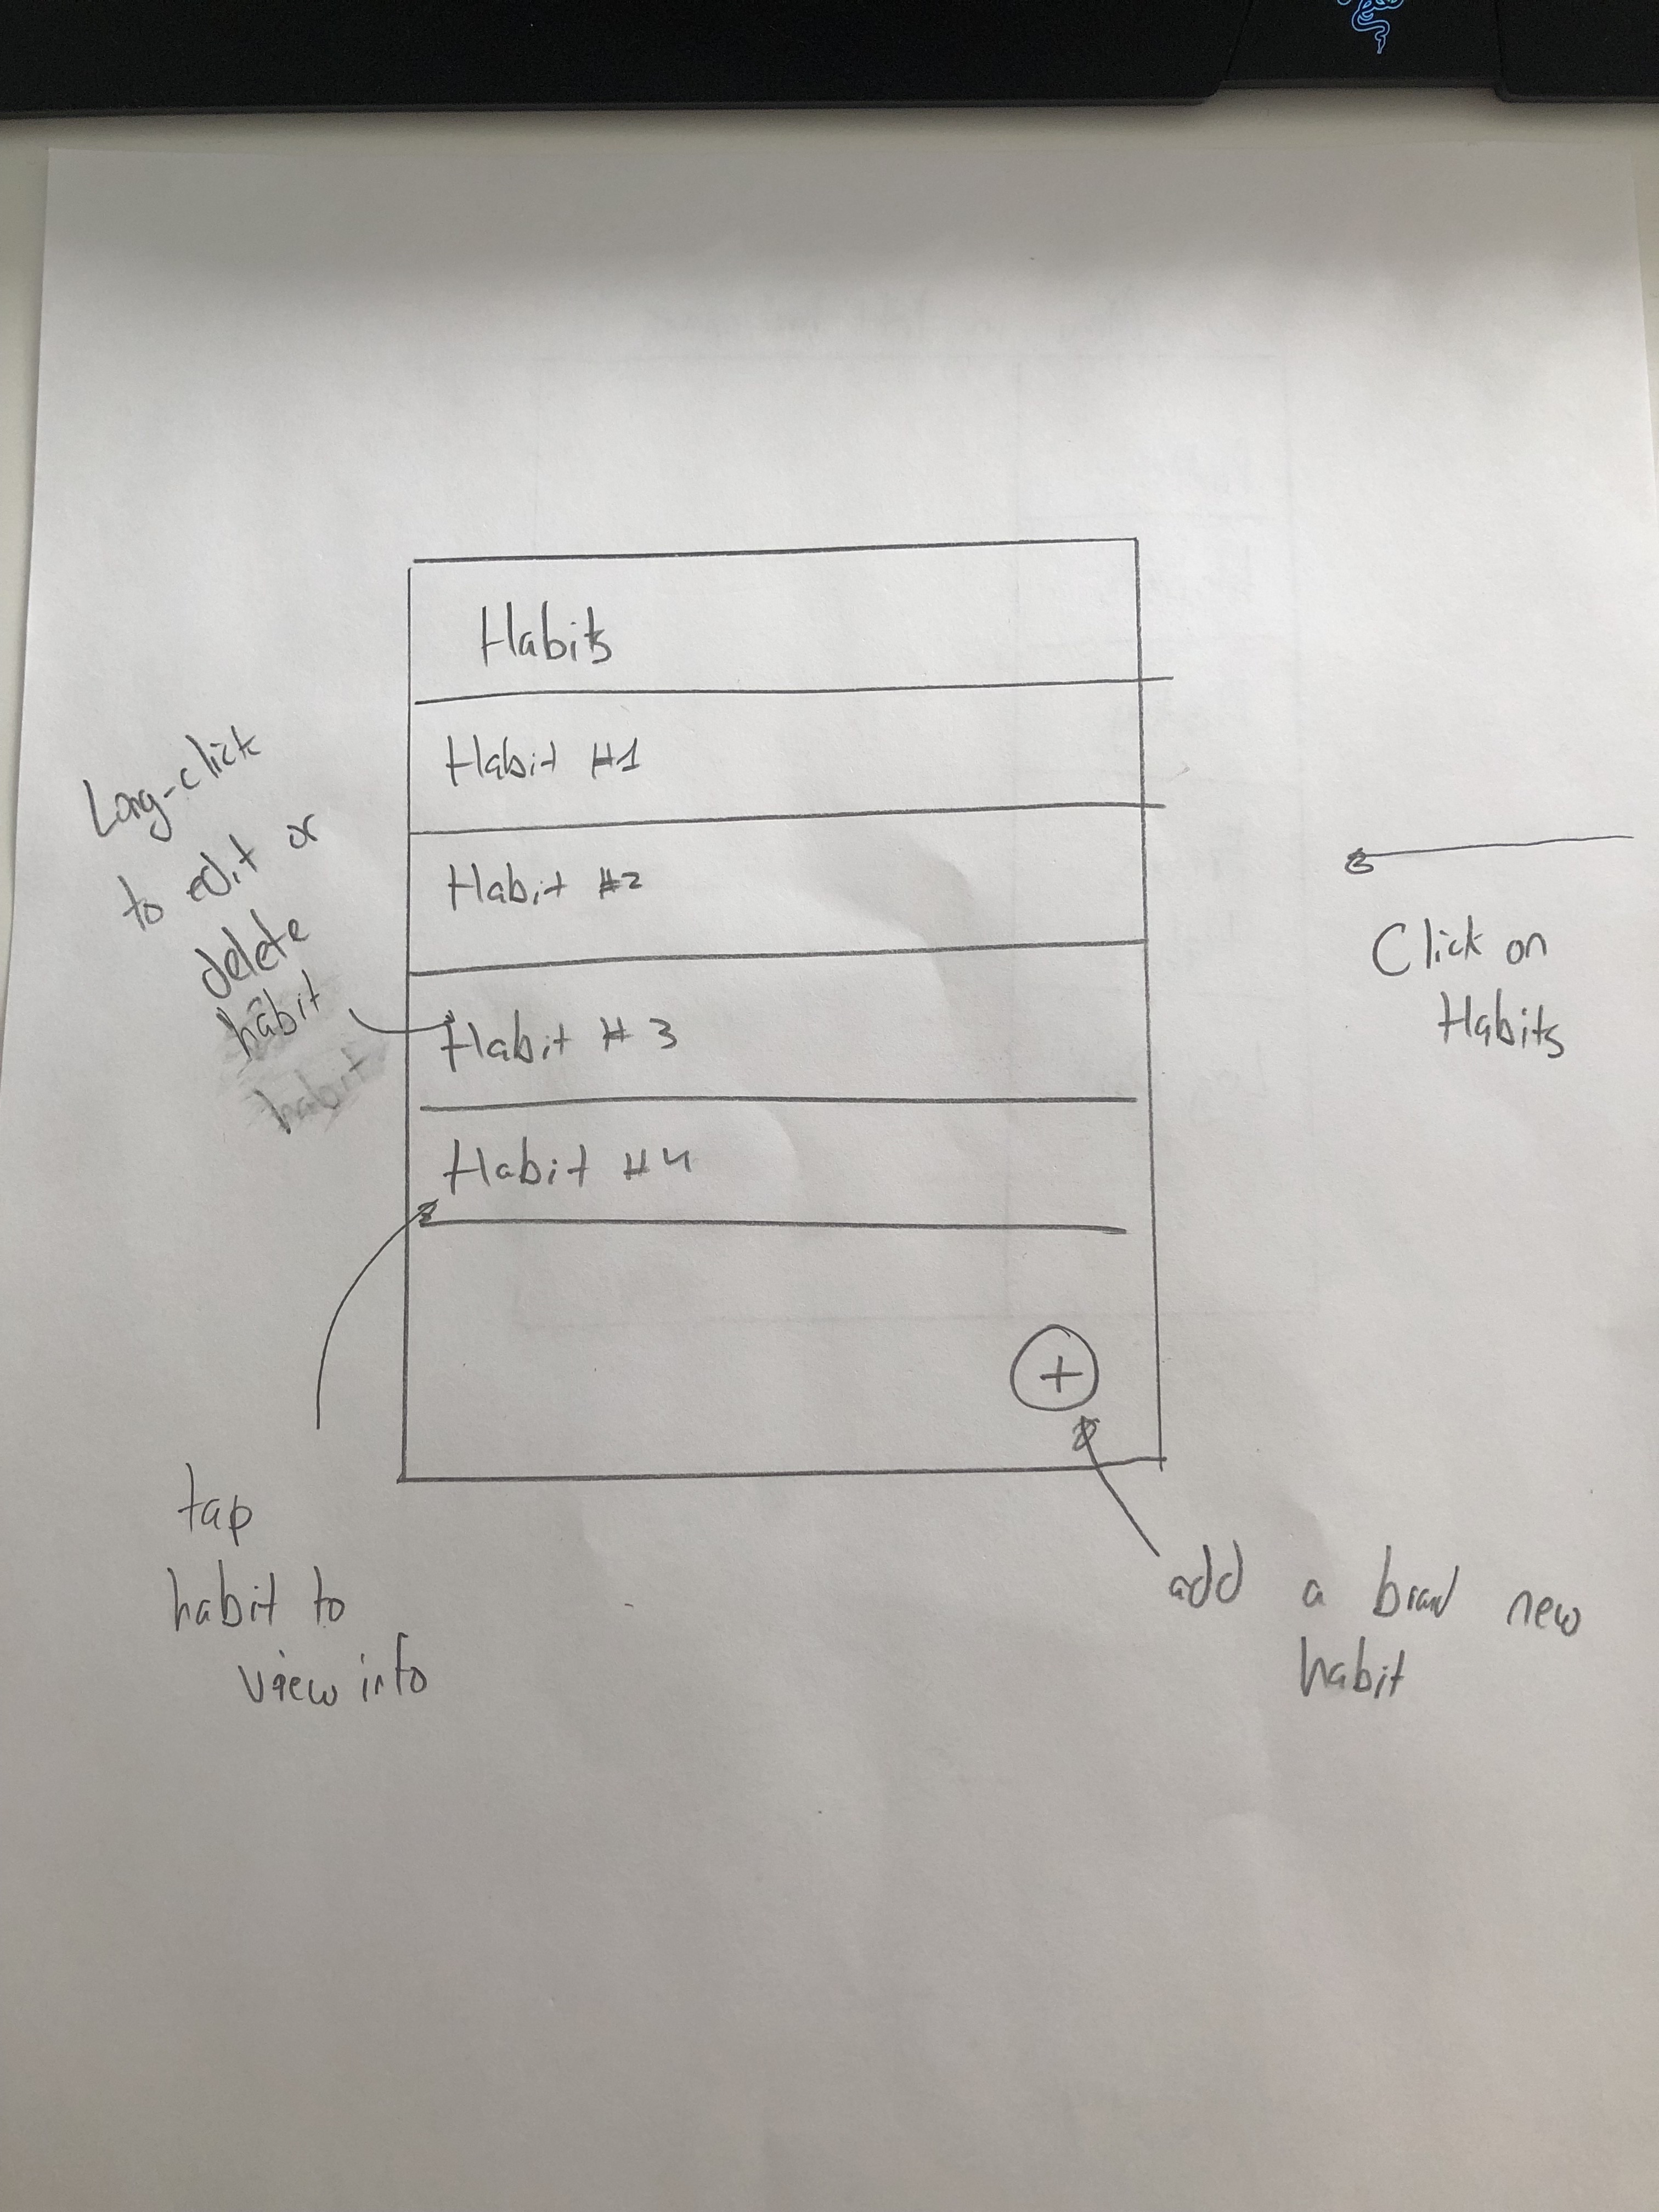 Habits
Habit #1
Habit #2
Habit #3
Habit #4
+
Long-click
to edit or
delete
habit
habit
tap
habit to
view info
Click on
Habits
add a brand new
habit